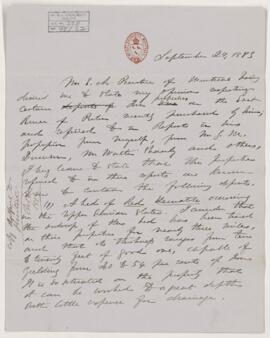 September 20, 1883
Mr. E. A. Prentice of Montreal having
desired me to state my opinions respecting
certain deposits of properties on the East
River of Pictou recently purchased by him,
and referred to in Reports on his
properties from myself, from Mr. G. M.
Dawson, Mr. Walter and others,
I beg leave to state that the properties
referred to in these reports are known
to contain the following deposits.
(1) A bed of Red Hematite occurring
in the Upper Silurian Slates. I learn that
the outcrop of this bed has been traced
on this property for nearly three miles,
and that its thickness ranges from ten
to twenty feet of good ore, capable of
yielding from 40 to 54 per cent of iron.
It is so situated on the property that
it can be worked to a great depth
with little expense for drainage.